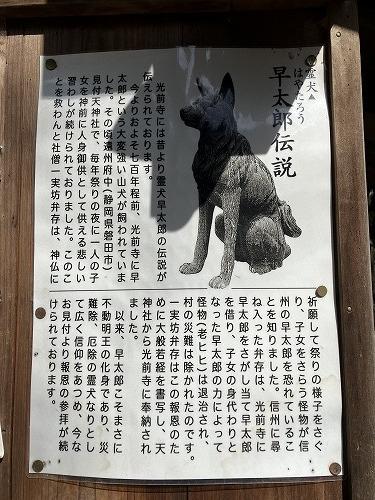 霊犬
はやたろう
早太郎伝説
光前寺には昔より霊犬早太郎の伝説が
伝えられております。
今よりおよそ七百年程前、光前寺に早
太郎という大変強い山犬が飼われていま
した。その頃遠州府中(静岡県磐田市)
見付天神社で、毎年祭りの夜に一人の子
女を神前に人身御供として供える悲しい
習わしが続けられておりました。このこ
とを救わんと社僧一実坊弁存は、神仏に
祈願して祭りの様子をさぐ
り、子女をさらう怪物が信
州の早太郎を恐れているこ
とを知りました。信州に尋
ね入った弁存は、光前寺に
早太郎をさがし当て早太郎
を借り、子女の身代わりと
なった早太郎の力によって
怪物(老ヒヒ)は退治され、
村の災難は除かれたのです。
一実坊弁存はこの報恩のた
めに大般若経を書写し、天
神社から光前寺に奉納され
ました。
以来、早太郎こそまさに
不動明王の化身であり、災
難除、厄除の霊犬なりとし
て広く信仰をあつめ、今な
お見付より報恩の参拝が続
けられております。